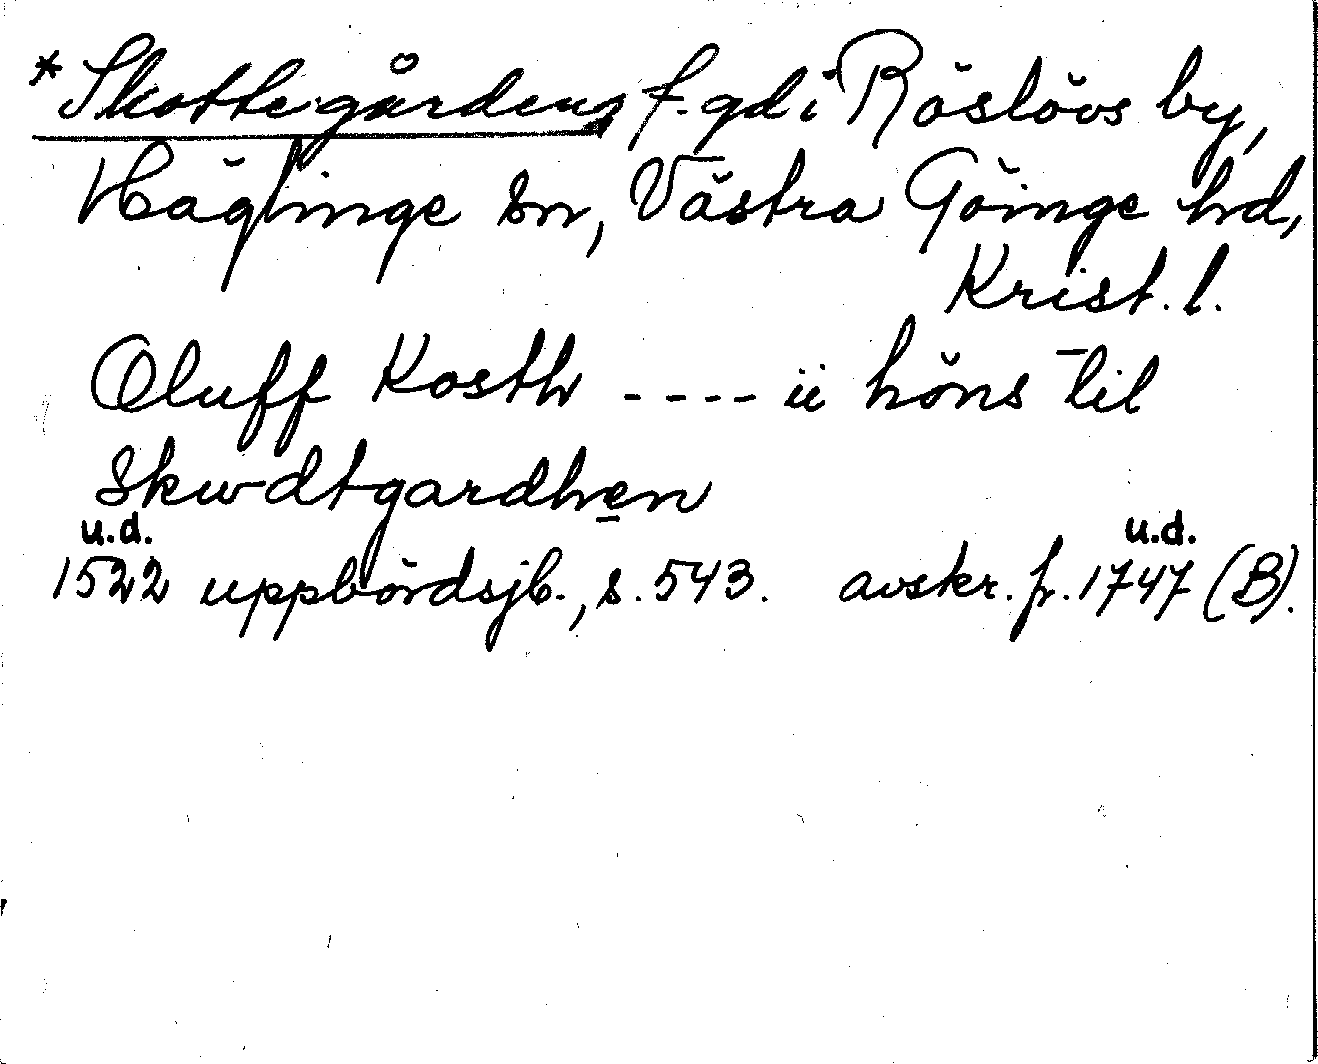 *Skottegården, f. gd i Röslövs by,
Häglinge sn, Västra Göinge hd,
Krist. l.
Oluff Kosth ---- ii höns til
Skwdtgardhen
u.d. u.d.
1522 uppbördsjb., s. 543. avskr. fr. 1747 (B).